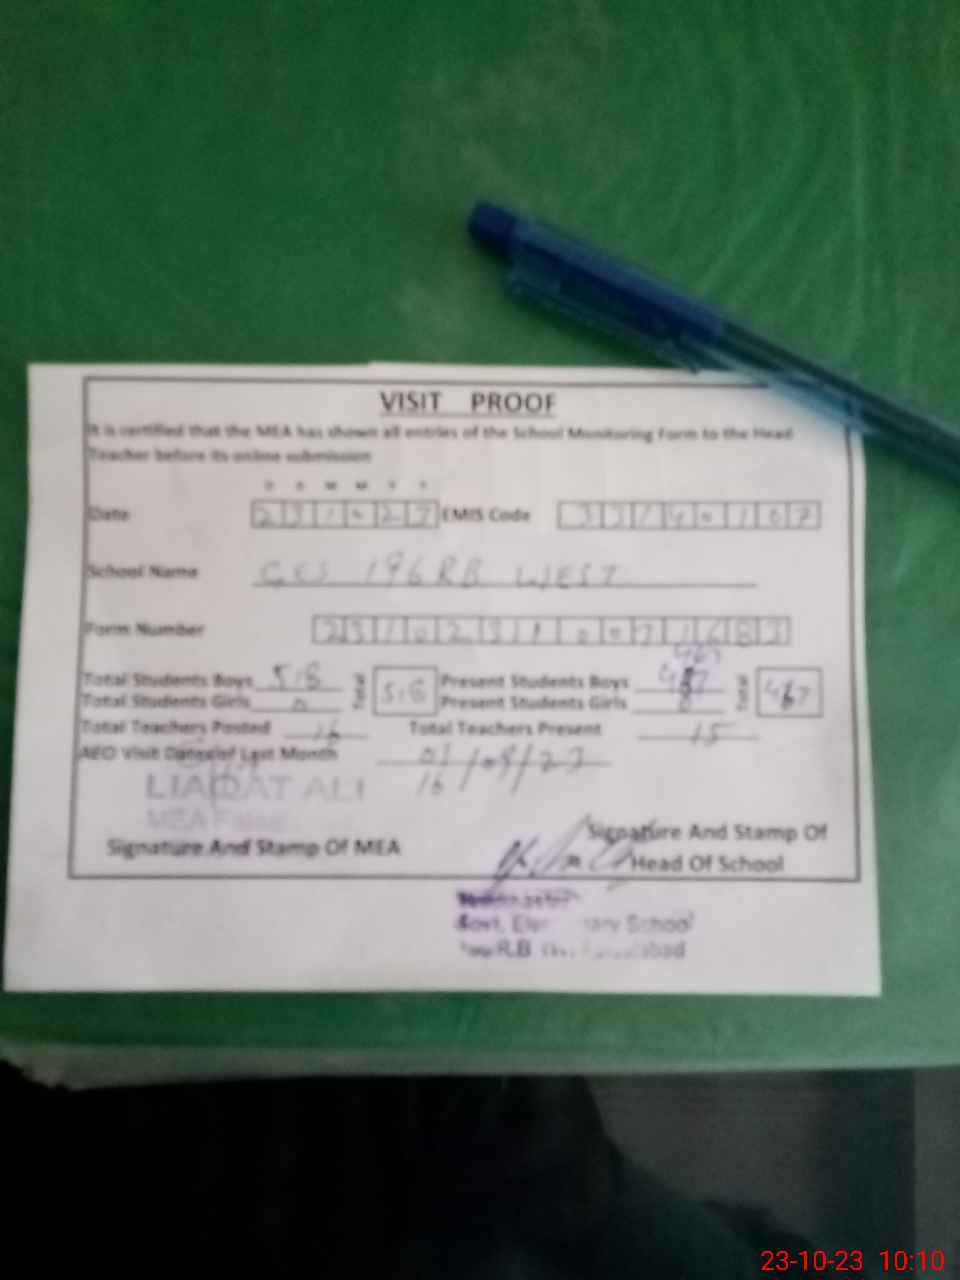 VISIT PROOF
It is certified that the MEA has shown all entries of the School Monitoring Form to the Head
Teacher before its online submission
D D M M Y Y
Date 231023 EMIS Code 33140107
School Name GES 196RB WEST
Form Number
Total Students Boys 518 Total 518 Present Students Boys 467 Total 467
Total Students Girls 0 Present Students Girls 0
Total Teachers Posted 16 Total Teachers Present 15
AEO Visit Dates of Last Month
LIAQAT ALI
MEA
Signature And Stamp Of MEA
Signature And Stamp Of
Head Of School
Govt. School
R.B
23-10-23 10:10